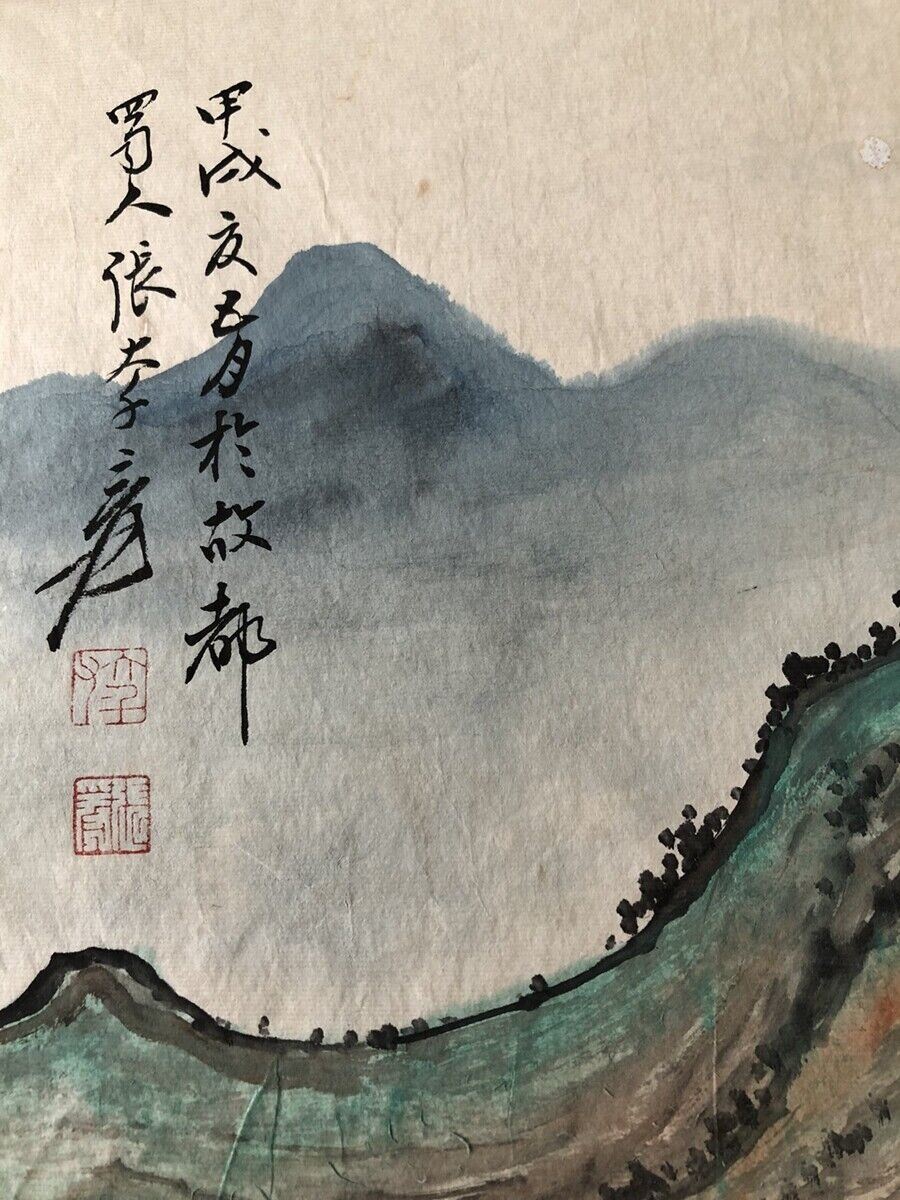 甲戌夏五月於故都
蜀人張大千爰